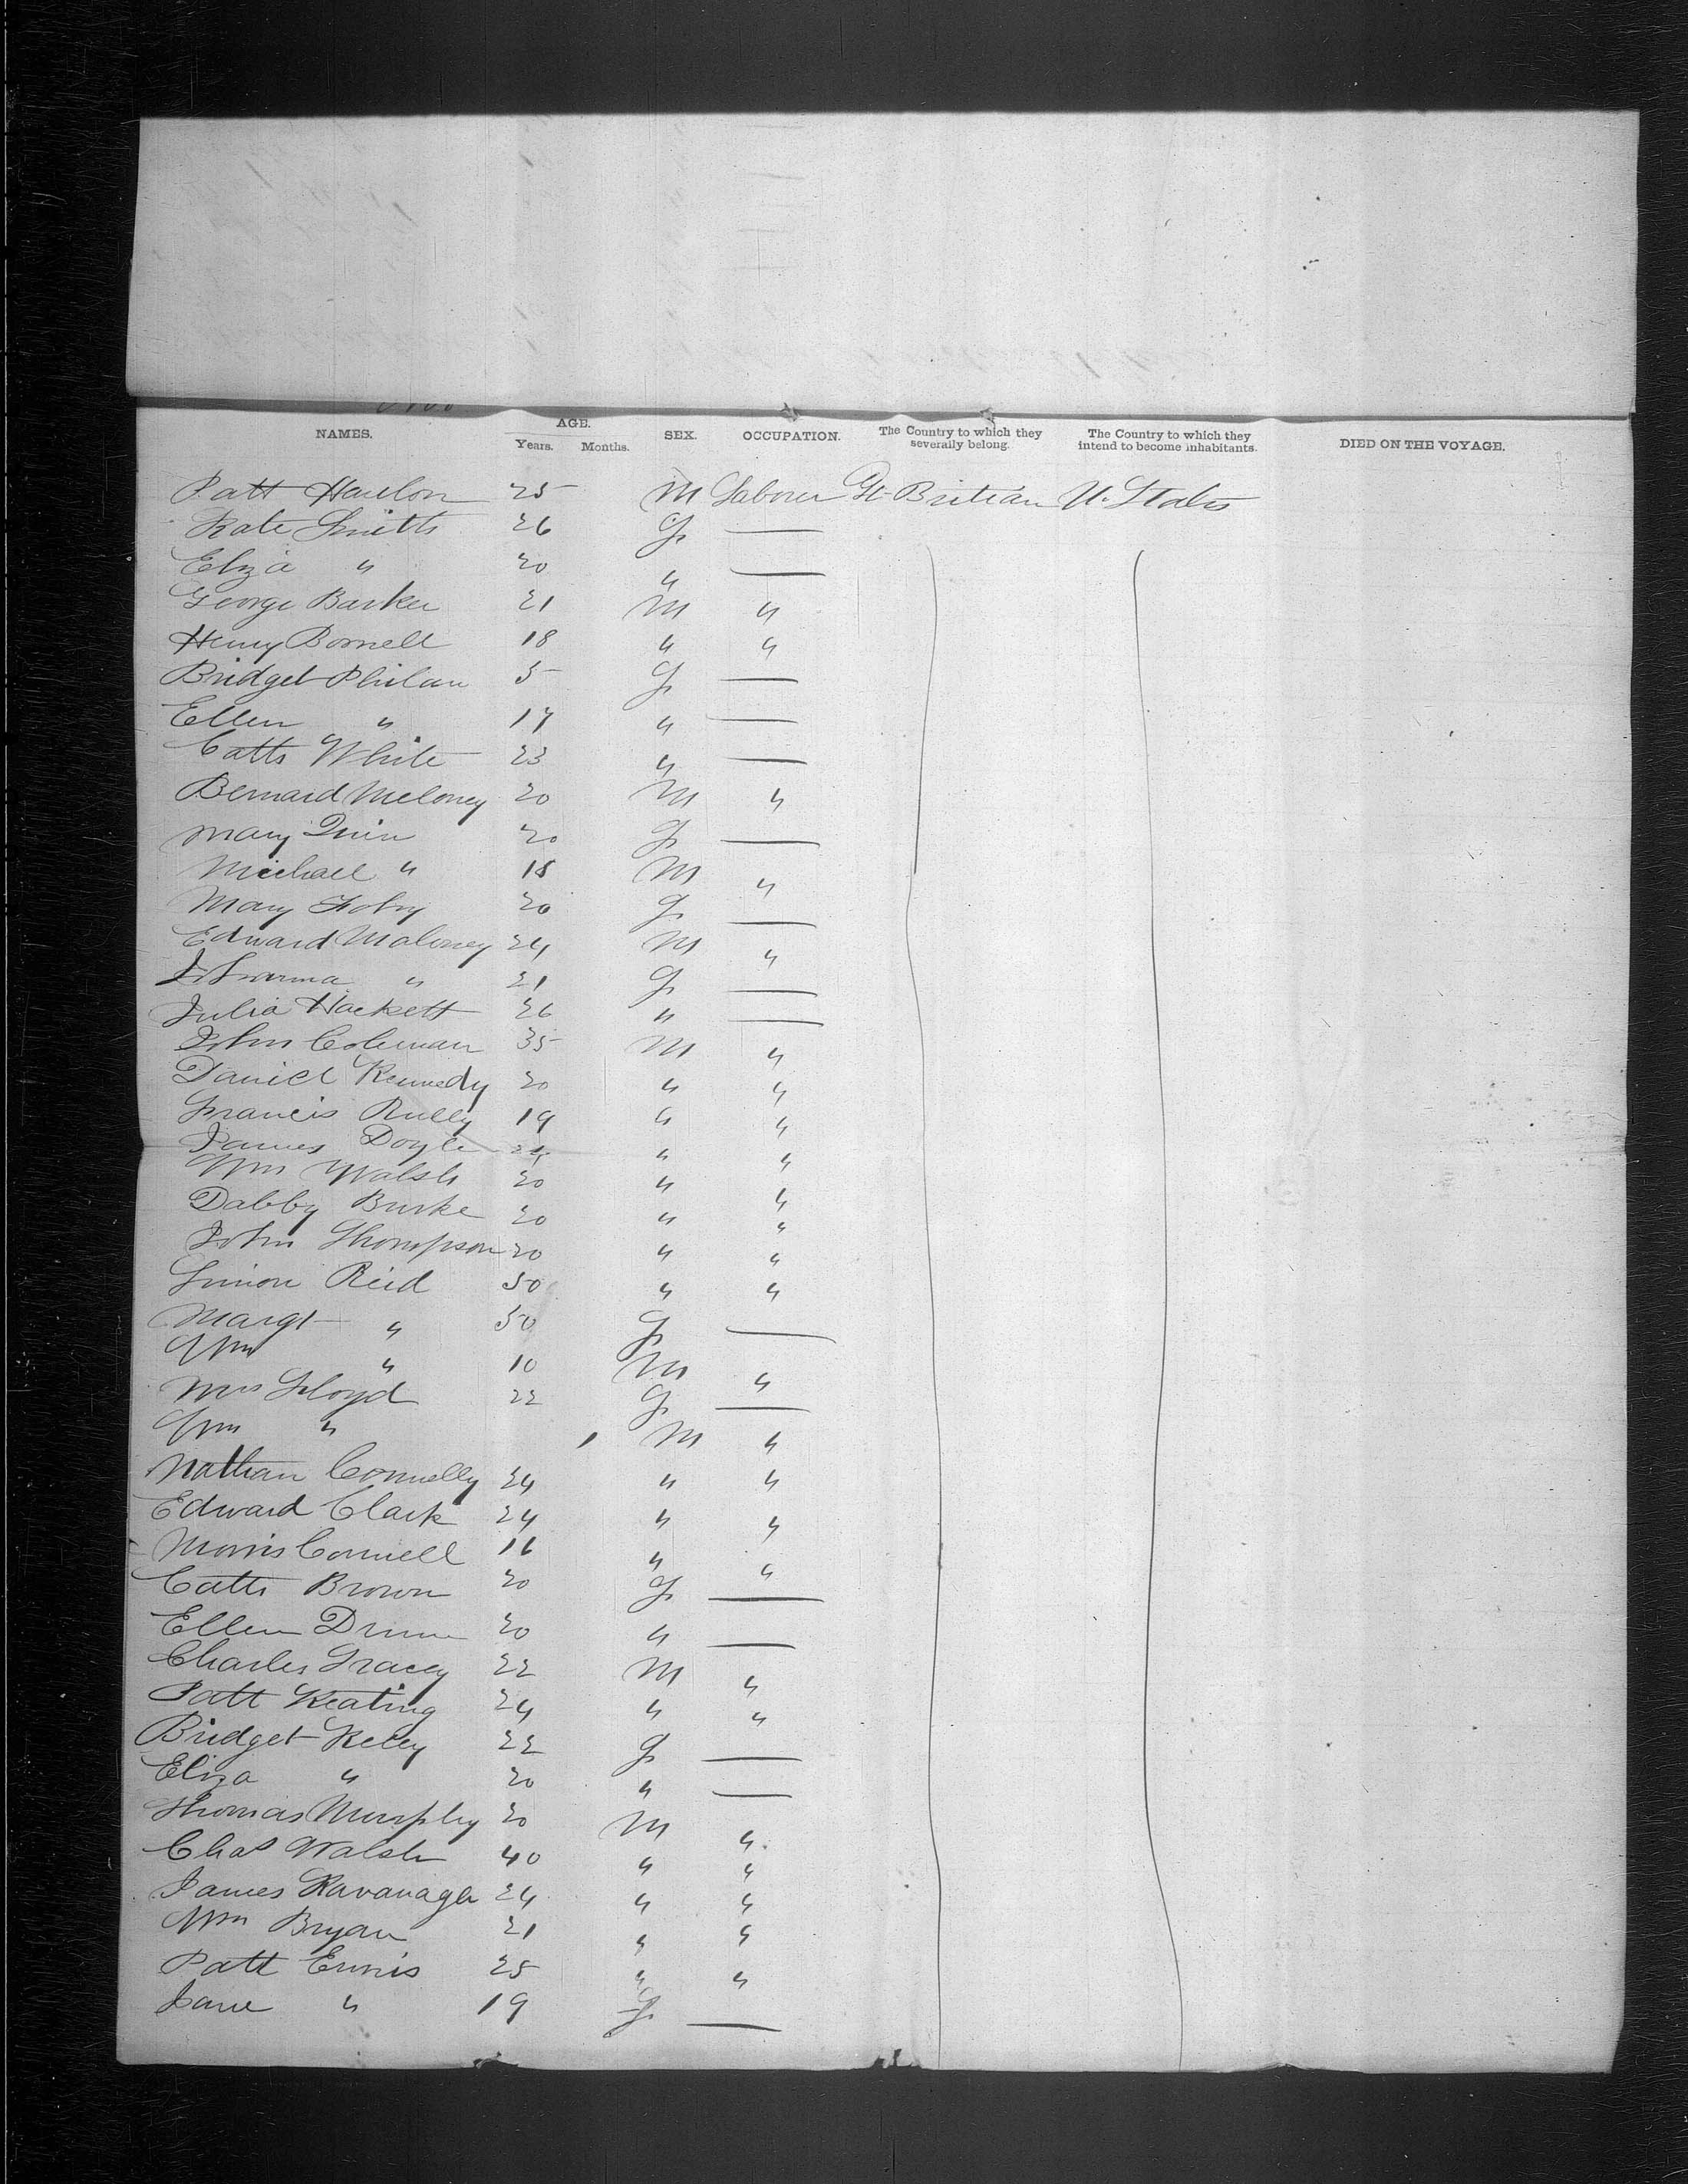 NAMES. AGE. Years. Months. SEX. OCCUPATION. The Country to which they severally belong. The Country to which they intend to become inhabitants. DIED ON THE VOYAGE.
Patt Hanlon 25 M Laborer Gt Britian U. States
Kate Smith 26 F —
Eliza " 20 " —
George Barker 21 M "
Henry Bornell 18 " "
Bridget Philan 5 F —
Ellen " 17 " —
Cath White 23 " —
Bernard Meloney 20 M "
Mary Quin 20 F —
Michael " 18 M "
Mary Foley 20 F —
Edward Maloney 24 M "
" 21 F —
Julia Hackett 26 " —
John Coleman 35 M "
Daniel Kennedy 20 " "
Francis 19 " "
James Doyle 24 " "
Wm Walsh 20 " "
Dabby Burke 20 " "
John Thompson 20 " "
Simon Reid 50 " "
Margt " 50 F —
Wm " 10 M "
Mrs Lloyd 22 F —
Wm " 1 M "
Nathan Connelly 24 " "
Edward Clark 24 " "
Morris Connell 16 " "
Cath Brown 20 F —
Ellen 20 " —
Charles Tracey 22 M "
Patt Keating 24 " "
Bridget Keley 22 F —
Eliza " 20 " —
Thomas Murphy 20 M "
Chas Walsh 40 " "
James Kavanagh 24 " "
Wm Bryan 21 " "
Patt Ennis 25 " "
Jane " 19 F —